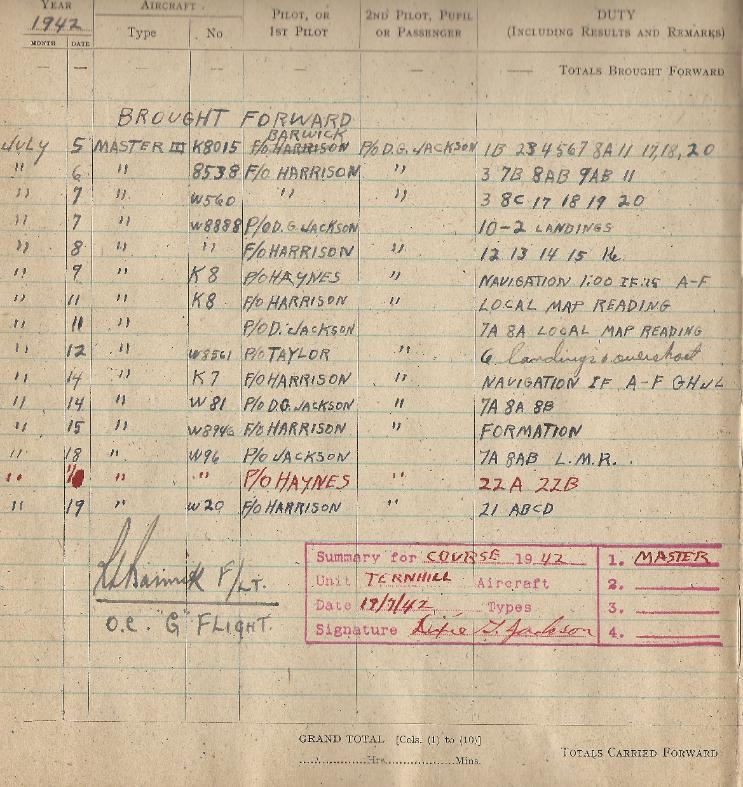 YEAR AIRCRAFT PILOT, OR 2ND PILOT, PUPIL DUTY
1942 Type No 1ST PILOT OR PASSENGER (INCLUDING RESULTS AND REMARKS)
MONTH DATE
— — — — — — — TOTALS BROUGHT FORWARD
BROUGHT FORWARD
BARWICK
JULY 5 MASTER III K8015 F/O HARRISON P/O D.G. JACKSON 1B 234567 8A 11 17, 18, 20
" 6 " 8538 F/O HARRISON " 3 7B 8AB 9AB 11
" 7 " W560 " " 3 8C 17 18 19 20
" 7 " W8888 P/O D.G. JACKSON 10-2 LANDINGS
" 8 " " F/O HARRISON " 12 13 14 15 16
" 9 " K8 P/O HAYNES " NAVIGATION 1:00 IF:15 A-F
" 11 " K8 F/O HARRISON " LOCAL MAP READING
" 11 " P/O D. JACKSON 7A 8A LOCAL MAP READING
" 12 " W8561 P/O TAYLOR " 6 landings & overshoot
" 14 " K7 F/O HARRISON " NAVIGATION IF A-F GHJL
" 14 " W81 P/O D.G. JACKSON " 7A 8A 8B
" 15 " W8946 F/O HARRISON " FORMATION
" 18 " W96 P/O JACKSON 7A 8AB L.M.R.
" " " P/O HAYNES " 22A 22B
" 19 " W20 F/O HARRISON " 21 ABCD
Barwick F/LT.
O.C. "G" FLIGHT.
Summary for COURSE 1942 1. MASTER
Unit TERNHILL Aircraft 2.
Date 19/7/42 Types 3.
Signature Dixie G. Jackson 4.
GRAND TOTAL [Cols. (1) to (10)]
Hrs. Mins. TOTALS CARRIED FORWARD